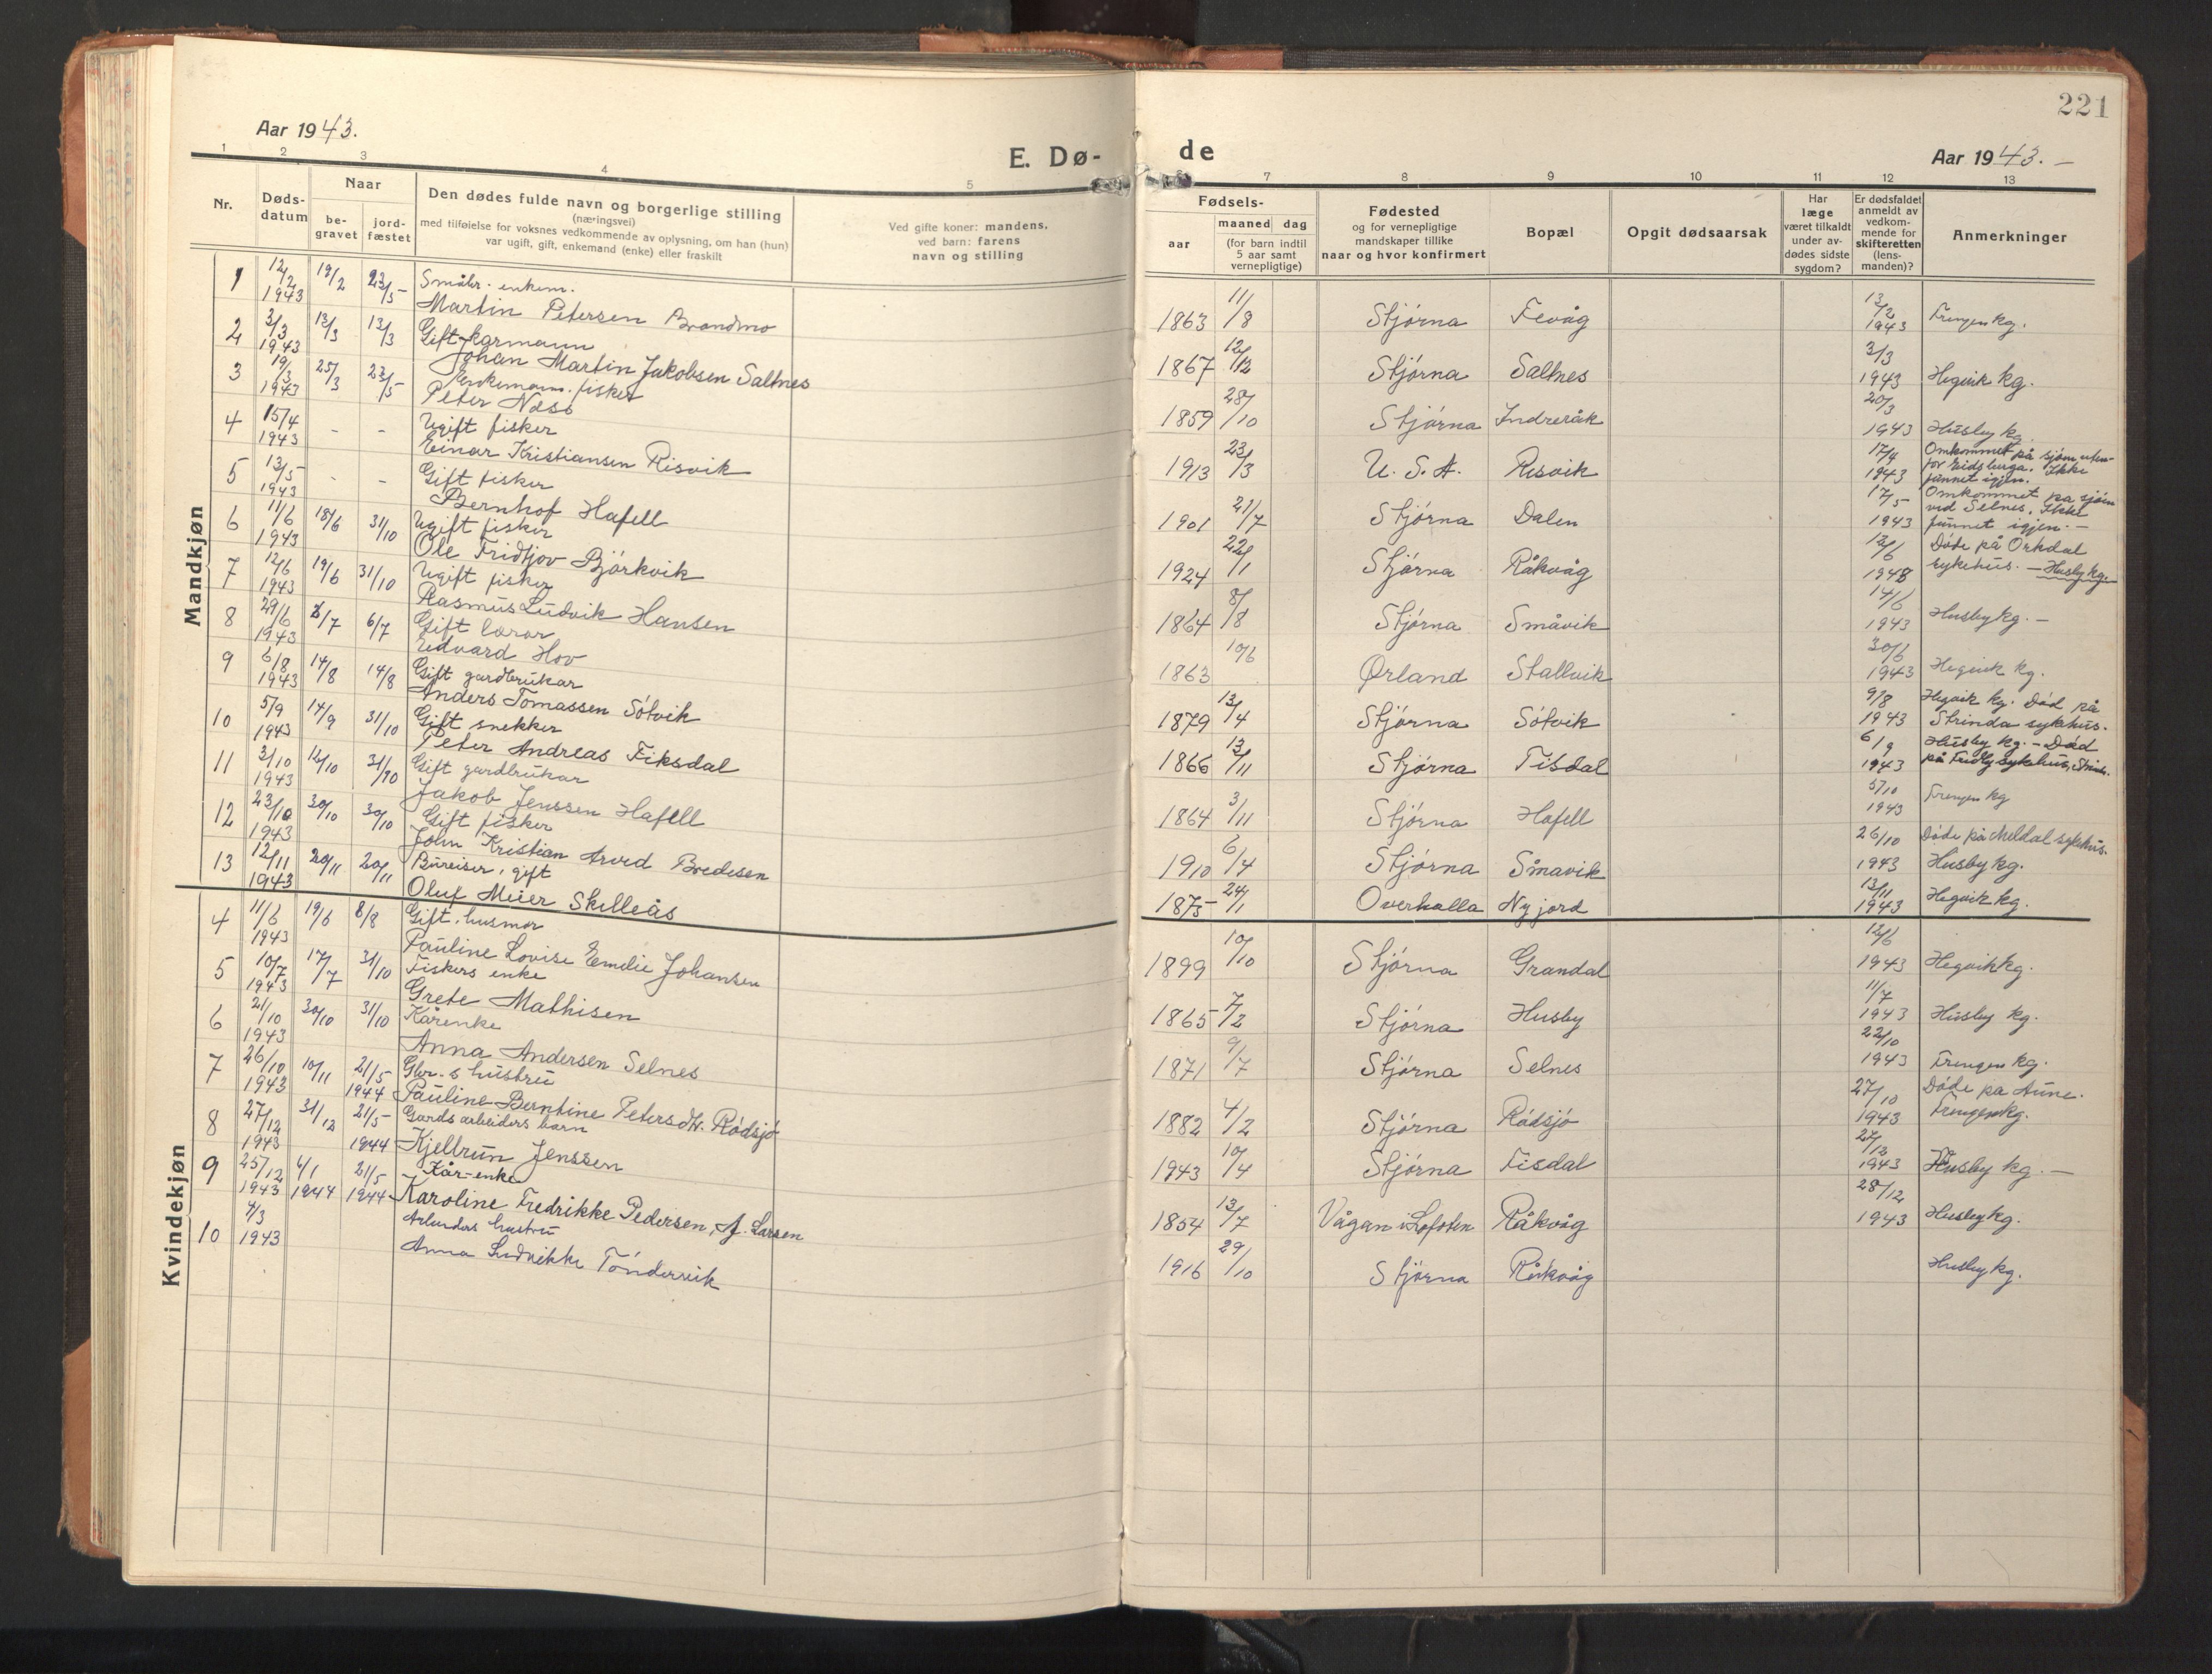 221
Aar 1943.
E. Dø-
de
Aar 1943. –
1 2 3 4 5
7 8 9 10 11 12 13
Nr.
Døds-
datum
Naar
be-
gravet
jord-
fæstet
Den dødes fulde navn og borgerlige stilling
(næringsvei)
med tilføielse for voksnes vedkommende av oplysning, om han (hun)
var ugift, gift, enkemand (enke) eller fraskilt
Ved gifte koner: mandens,
ved barn: farens
navn og stilling
Fødsels-
aar
maaned dag
(for barn indtil
5 aar samt
vernepligtige)
Fødested
og for vernepligtige
mandskaper tillike
naar og hvor konfirmert
Bopæl
Opgit dødsaarsak
Har
læge
været tilkaldt
under av-
dødes sidste
sygdom?
Er dødsfaldet
anmeldt av
vedkom-
mende for
skifteretten
(lens-
manden)?
Anmerkninger
Mandkjøn
1 12/2 1943 19/2 23/5 Småbr. enkem.
Martin Petersen Brandmo 1863 11/8 Stjórna Fevåg 13/2 1943 Frengen kg.
2 3/3 1943 13/3 13/3 Gift karmann
Johan Martin Jakobsen Saltnes 1867 12/12 Stjórna Saltnes 3/3 1943 Hegvik kg.
3 19/3 1943 25/3 23/5 Enkemann. fisker
Peter Næss 1859 28/10 Stjórna Indreråk 20/3 1943 Husby kg.
4 15/4 1943 - - Ugift fisker
Einar Kristiansen Risvik 1913 23/3 U. S. A. Risvik 17/4 1943 Omkommet på sjøen uten-
for Eidsburga. Ikke
funnet igjen.
5 13/5 1943 - - Gift fisker
Bernhof Hafell 1901 21/7 Stjórna Dalen 17/5 1943 Omkommet på sjøen
ved Selnes. Ikke
funnet igjen. –
6 11/6 1943 18/6 31/10 Ugift fisker
Ole Fridtjov Bjórkvik 1924 22/1 Stjórna Råkvåg 12/6 1943 Døde på Orkdal
sykehus. – Husby kg.
7 12/6 1943 19/6 31/10 Ugift fisker
Rasmus Ludvik Hansen 1864 8/8 Stjórna Småvik 14/6 1943 Husby kg. –
8 29/6 1943 6/7 6/7 Gift lærar
Edvard Hov 1863 10/6 Ørland Stallvik 30/6 1943 Hegvik kg.
9 6/8 1943 14/8 14/8 Gift gardbrukar
Anders Tomassen Sótvik 1879 13/4 Stjórna Sótvik 9/8 1943 Hegvik kg. Død på
Strinda sykehus.
10 5/9 1943 14/9 31/10 Gift snekker
Peter Andreas Fiksdal 1866 13/11 Stjórna Fisdal 6/9 1943 Husby kg. – Død
på Fridly sykehus,
11 3/10 1943 12/10 31/10 Gift gardbrukar
Jakob Jenssen Hafell 1864 3/11 Stjórna Hafell 5/10 1943 Frengen kg
12 23/10 1943 30/10 30/10 Gift fisker
John Kristian Arved Bredesen 1910 6/4 Stjórna Småvik 26/10 1943 Døde på Meldal sykehus.
Husby kg.
13 12/11 1943 20/11 20/11 Bureiser, gift
Oluf Meier Skilleås 1875 24/1 Overhalla Nyjord 13/11 1943 Hegvik kg.
Kvindekjøn
4 11/6 1943 19/6 8/8 Gift. husmor
Pauline Lovise Emelie Johansen 1899 10/10 Stjórna Grandal 12/6 1943 Hegvik kg.
5 10/7 1943 17/7 31/10 Fiskers enke
Grete Mathisen 1865 7/2 Stjórna Husby 11/7 1943 Husby kg.
6 21/10 1943 30/10 31/10 Kårenke
Anna Andersen Selnes 1871 9/7 Stjórna Selnes 22/10 1943 Frengen kg.
7 26/10 1943 10/11 21/5 1944 Gbr.s hustru
Pauline Berntine Petersdtr. Rødsjø 1882 4/2 Stjórna Ródsjó 27/10 1943 Døde på Aune.
Frengen kg.
8 27/12 1943 31/12 21/5 1944 Gardsarbeiders barn
Kjellrun Jenssen 1943 10/4 Stjórna Fisdal 27/12 1943 Husby kg. –
9 25/12 1943 4/1 1944 21/5 1944 Kår-enke
Karoline Fredrikke Pedersen, f. Larsen 1854 13/7 Vågan i Lofoten Råkvåg 28/12 1943 Husby kg.
10 4/3 1943 Arbeiders hustru
Anna Ludvikke Tóndervik 1916 29/10 Stjórna Råkvåg Husby kg.